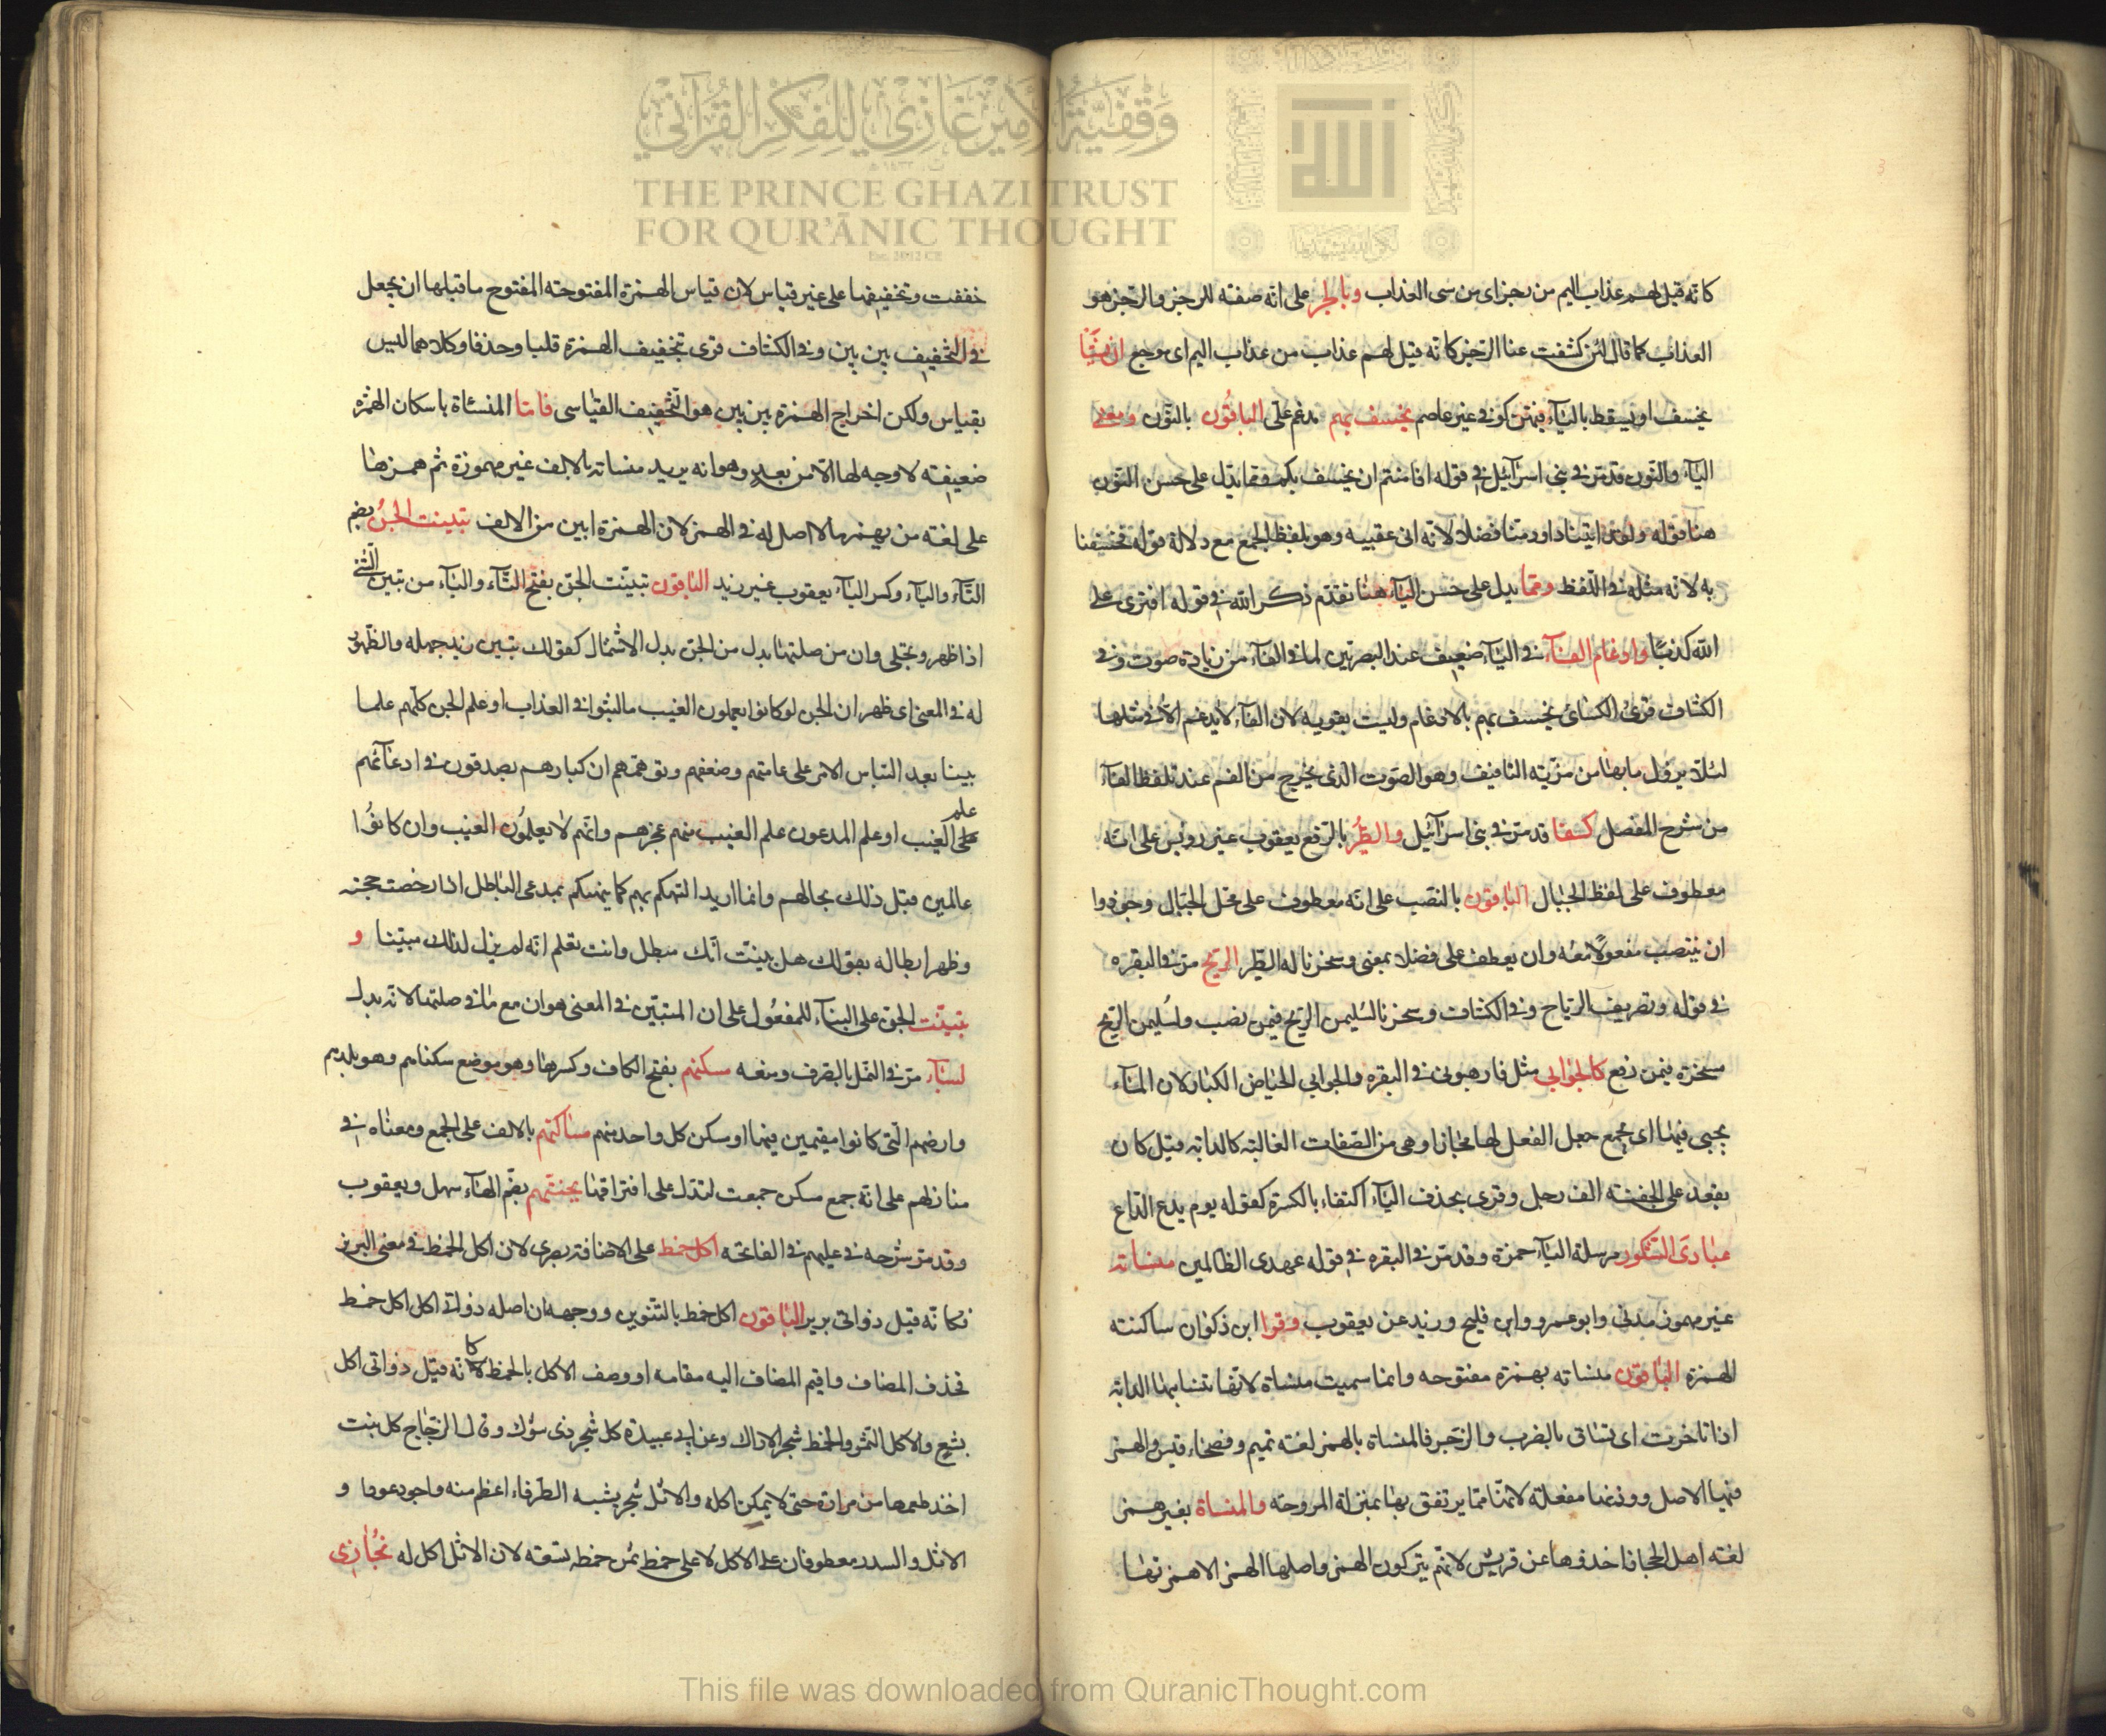 كانه قيل لهم عذاب اليم من رجز اى من سئ العذاب وبالجر على انه صفته للرجز والرجز هو
العذاب كما قال لئن كشفت عنا الرجز كانه قيل لهم عذاب من عذاب اليم اى موجع ان يشا
يخسف او يسقط بالياء فيهن كوفى غير عاصم يخسف بهم مدغم على الباقون بالنون ومعنى
الياء والنون قد مر فى بنى اسرائيل فى قوله افامنتم ان يخسف بكم ومما يدل على حسن النون
هنا قوله ولقد اتينا داود منا فضلا لانه اتى عقيبه وهو بلفظ الجمع مع دلالة قوله فخسفنا
به لانه مثله فى اللفظ ومما يدل على حسن الياء هنا تقدم ذكر الله فى قوله افترى على
الله كذبا وادغام الفاء فى الباء ضعيف عند البصريين لما فى الفاء من زيادة صوت وفى
الكشاف قرئ الكسائى يخسف بهم بالادغام وليست بقويه لان الفاء لا يدغم الا فى مثلها
لئلا يزول ما بها من مزيته التافيف وهو الصوت الذى يخرج من الفم عند تلفظ الفاء
من شرح المفصل كسفا قد مر فى بنى اسرآئيل والطير بالرفع يعقوب غير رويس على انه
معطوف على لفظ الجبال الباقون بالنصب على انه معطوف على محل الجبال وجوزوا
ان ينتصب مفعولا معه وان يعطف على فضلا بمعنى وسخرنا له الطير الريح مر فى البقره
فى قوله وتصريف الرياح وفى الكشاف وسخرنا لسليمن الريح فيمن نصب ولسليمن الريح
مسخرة فيمن رفع كالجوابى مثل فارهبونى فى البقره والجوابى الحياض الكبار لان الماء
يجبى فيها اى يجمع جعل الفعل لها مجازا وهى من الصفات الغالبته كالدابه قيل كان
يقعد على الجفنته الف رجل وقرى بحذف الياء اكتفاء بالكسرة كقوله يوم يدع الداع
عبادى الشكور مرسلة الياء حمزة وقد مر فى البقره فى قوله عهدى الظالمين منساته
غير مهموز مدنى وابو عمرو وابن فليح وزيد عن يعقوب وقرا ابن ذكوان ساكنته
الهمزة الباقون منساته بهمزة مفتوحه وانما سميت منساة لانها تنسا بها الدابه
اذا تاخرت اى تساق بالضرب والزجر فالمنساة بالهمز لغته تميم وفصحاء قيس والهمز
فيها الاصل ووزنها مفعلة لانها مما يرتفق بها بمنزلة المروحته والمنساة بغير همز
لغته اهل الحجاز اخذوها عن قريش لانهم يتركون الهمز واصلها الهمز الا همزتها
خففت وتخفيفها على غير قياس لان قياس الهمزة المفتوحته المفتوح ما قبلها ان يجعل
فى التخفيف بين بين وفى الكشاف قرى بتخفيف الهمزة قلبا وحذفا وكلاهما ليس
بقياس ولكن اخراج الهمزة بين بين هو التخفيف القياسى فاما المنسئاة باسكان الهمزه
ضعيفته لا وجه لها الا من بعد وهو انه يريد منساته بالالف غير مهموزة ثم همزها
على لغته من يهمز ما لا اصل له فى الهمز لان الهمزة ابين من الالف تبينت الجن بضم
التاء والباء وكسر الياء يعقوب غير زيد الباقون تبينت الجن بفتح التاء والباء من تبين الشئ
اذا ظهر وتجلى وان من صلتها بدل من الجن بدل الاشتمال كقولك تبين زيد جهله والظهور
له فى المعنى اى ظهر ان الجن لو كانوا يعلمون الغيب ما لبثوا فى العذاب او علم الجن كلهم علما
بينا بعد التباس الامر على عامتهم وضعفهم وتوهمهم ان كبارهم يصدقون فى ادعائهم
علم
الغيب او علم المدعون علم الغيب منهم عجزهم وانهم لا يعلمون الغيب وان كانوا
عالمين قبل ذلك بحالهم وانما اريد التهكم بهم كما يتهكم بمدعى الباطل اذا دحضت حجته
وظهر ابطاله بقولك هل تبينت انك مبطل وانت تعلم انه لم يزل لذلك مبينا و
تبينت الجن على البناء للمفعول على ان المتبين فى المعنى هو ان مع ما فى صلتها لانه بدل
لسباء مر فى النمل بالصرف ومنعه مسكنهم بفتح الكاف وكسرها وهو موضع سكناهم وهو بلدهم
وارضهم التى كانوا مقيمين فيها او سكن كل واحد منهم مساكنهم بالالف على الجمع ومعناه فى
منازلهم على انه جمع مسكن جمعت لتدل على افتراقها بجنتيهم بضم الهاء سهل ويعقوب
وقد مر شرحه فى عليهم فى الفاتحه اكل خمط على الاضافته بصرى لان اكل الخمط فى معنى البرير
فكانه قيل ذواتى برير الباقون اكل خمط بالتنوين ووجهه ان اصله ذواتى اكل اكل خمط
فحذف المضاف واقيم المضاف اليه مقامه او وصف الاكل بالخمط كانه قيل ذواتى اكل
بشع والاكل الثمر والخمط شجر الاراك وعن ابى عبيدة كل شجر ذى شوك وقال الزجاج كل نبت
اخذ طعمها من مرارة حتى لا يمكن اكله والاثل شجر يشبه الطرفاء اعظم منه واجود عودا و
الاثل والسدر معطوفان على الاكل لا على خمط لان الاثل لا اكل له نجازى